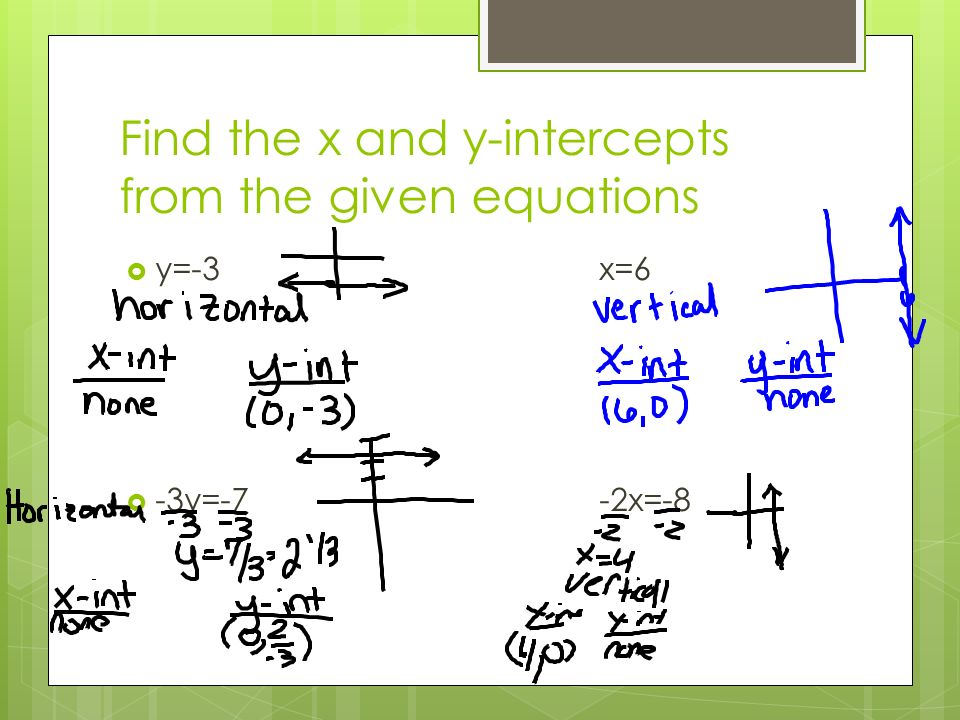 Find the x and y-intercepts
from the given equations
y=-3
horizontal
x-int y-int
none (0,-3)
x=6
vertical
x-int y-int
(6,0) none
-3y=-7
Horizontal -3 -3
y=7/3=2 1/3
x-int y-int
none
-2x=-8
-2 -2
x=4
vertical
x-int y-int
(4,0) none